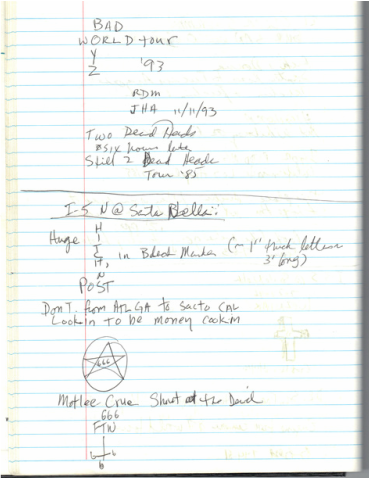 BAD
WORLD tour
Y
Z '93
RDM
JHA 11/11/93
Two Dead Heads
six hours late
Still 2 Dead Heads
Tour '85
I-5 N @ Santa Nella:
Huge
H
I
in Black Marker (~ 1" thick letters
3' long)
POST
Don T. from ATL GA to Sacto CAL
Lookin To be money cook'n
666
Motlee Crue Shout at the Devil
666
FTW
6 6
6